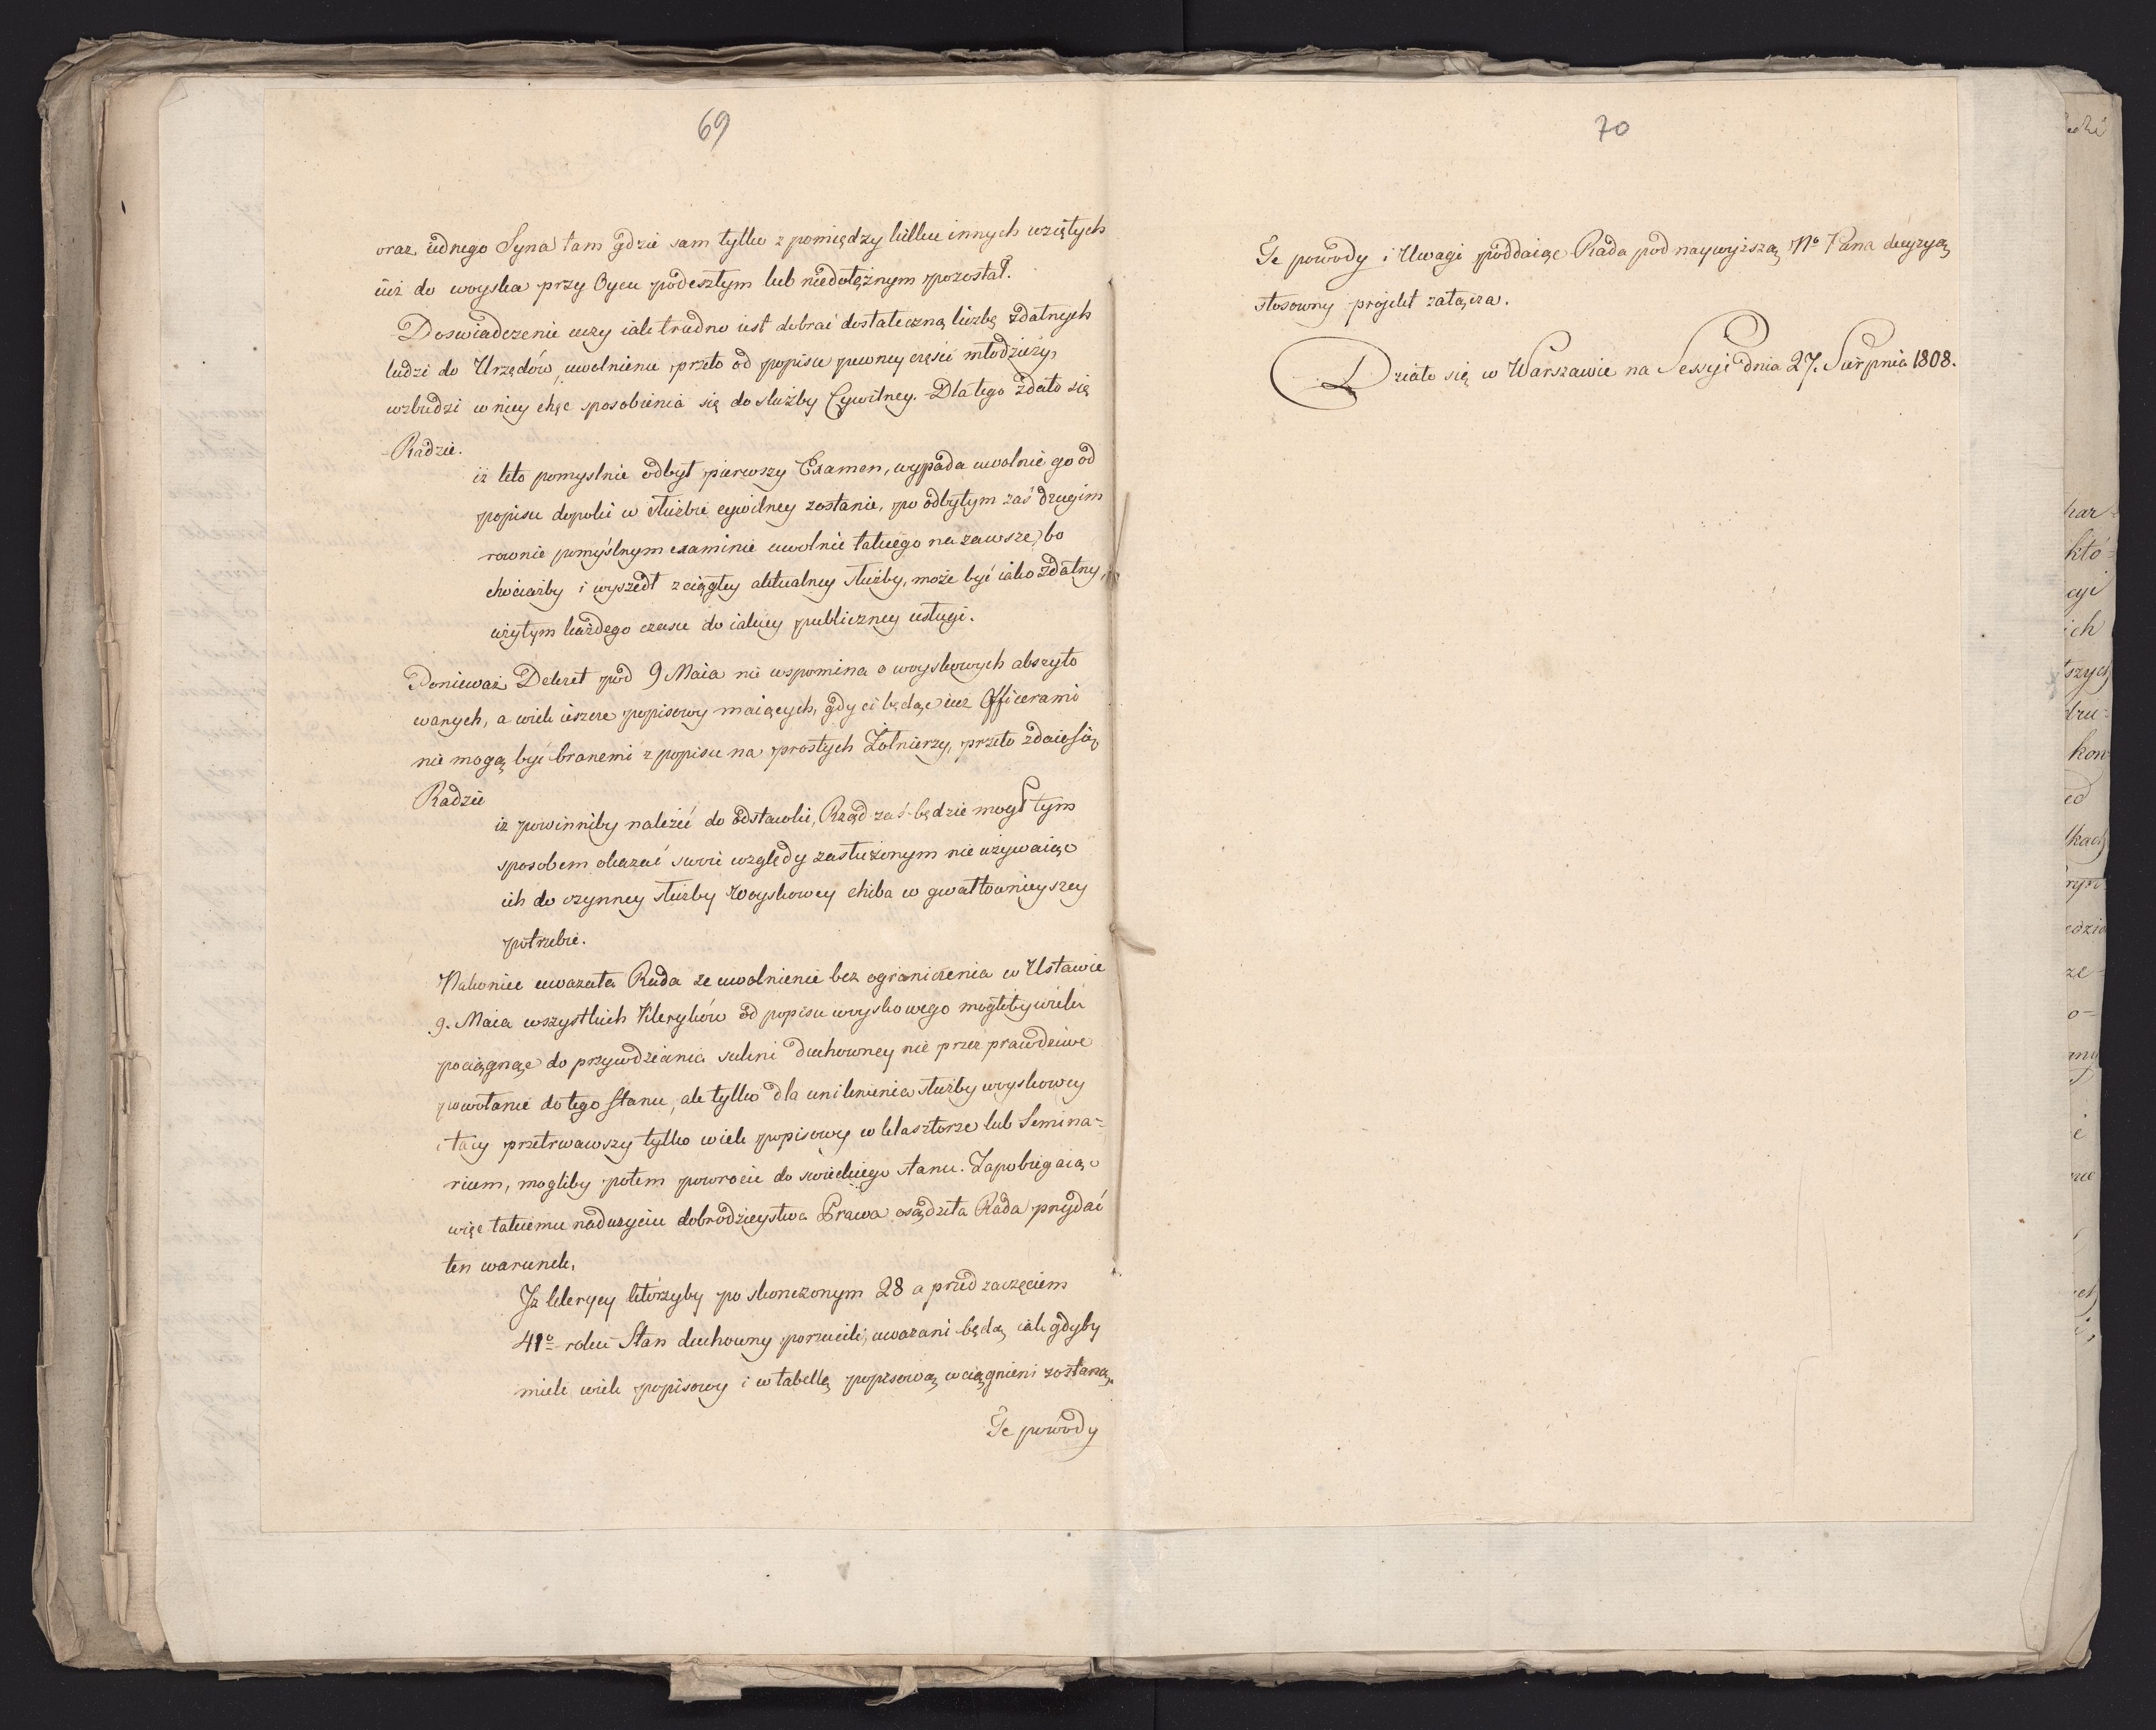 69
oraz iednego Syna tam gdzie sam tylko z pomiędzy kilku innych wziętych
iuż do woyska przy Oycu podeszłym lub niedołężnym pozostał.
Doswiadczenie uczy iak trudno iest dobrać dostateczną liczbę zdatnych
ludzi do Urzędów, uwolnienie przeto od popisu pewney części młodzieży,
wzbudzi w niey chęć sposobienia się do służby Cywilney. Dla tego zdało się
Radzie.
iż kto pomyslnie odbył pierwszy Examen, wypada uwolnić go od
popisu dopoki w służbie cywilney zostanie, po odbytym zaś drugim
rownie pomyślnym examinie uwolnić takiego na zawsze, bo
chociażby i wyszedł z ciągłey aktualney służby, może być iako zdatny,
użytym każdego czasu do iakiey publiczney usługi.
Ponieważ Dekret pod 9 Maia nie wspomina o woyskowych abszyto
wanych, a wiek ieszcze popisowy maiących, gdy ci będąc iuż Officerami
nie mogą być branemi z popisu na prostych Żołnierzy, przeto zdaie się
Radzie
iż powinniby należeć do odstawki, Rząd zaś będzie mogł tym
sposobem okazać swoie względy zasłużonym nie używaiąc
ich do czynney służby Woyskowey chiba w gwałtownieyszey
potrzebie.
Nakoniec uważała Rada że uwolnienie bez ograniczenia w Ustawie
9. Maia wszystkich Kleryków od popisu woyskowego mogłoby wielu
pociągnąc do przywdziania sukni duchowney nie przez prawdziwe
powołanie do tego stanu, ale tylko dla uniknienia służby woyskowey
i tacy przetrwawszy tylko wiek popisowy w klasztorze lub Semina=
rium, mogliby potem powrocić do swieckiego stanu. Zapobiegaiąc
więc takiemu nadużyciu dobrodzieystwa Prawa osądziła Rada przydać
ten warunek,
Iż klerycy którzyby po skonczonym 28 a przed zaczęciem
41o roku Stan duchowny porzucili, uważani będą iak gdyby
mieli wiek popisowy i w tabellę popisową wciągnieni zostaną.
Te powody
70
Te powody i Uwagi poddaiąc Rada pod naywyższą No Pana decyzyą
stosowny projekt załącza.
Działo się w Warszawie na Sessyi dnia 27. Sierpnia 1808.